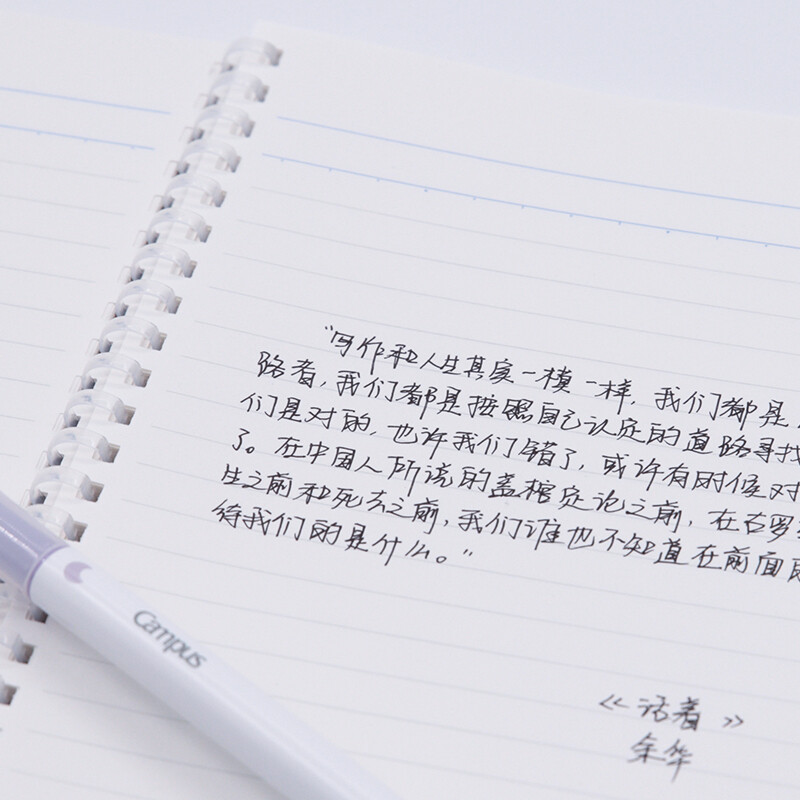 “写作和人生其实一模一样，我们都是
路者，我们都是按照自己认定的道路寻找
们是对的，也许我们错了，或许有时候对
了。在中国人所说的盖棺定论之前，在古罗
生之前和死去之前，我们谁也不知道在前面
待我们的是什么。”
《活着》
余华
Campus